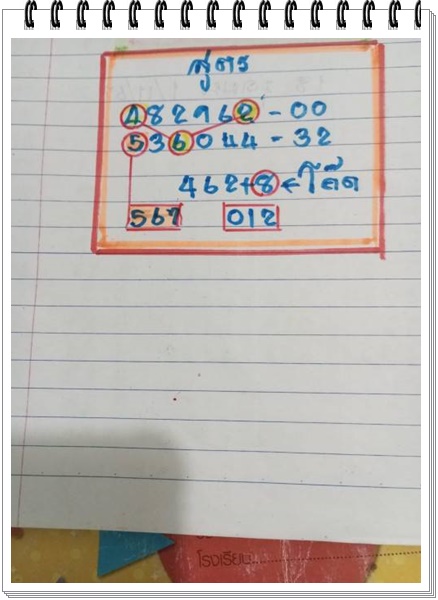 สูตร
482962-00
536044-32
462+8←โค๊ด
567 012
โรงเรียน